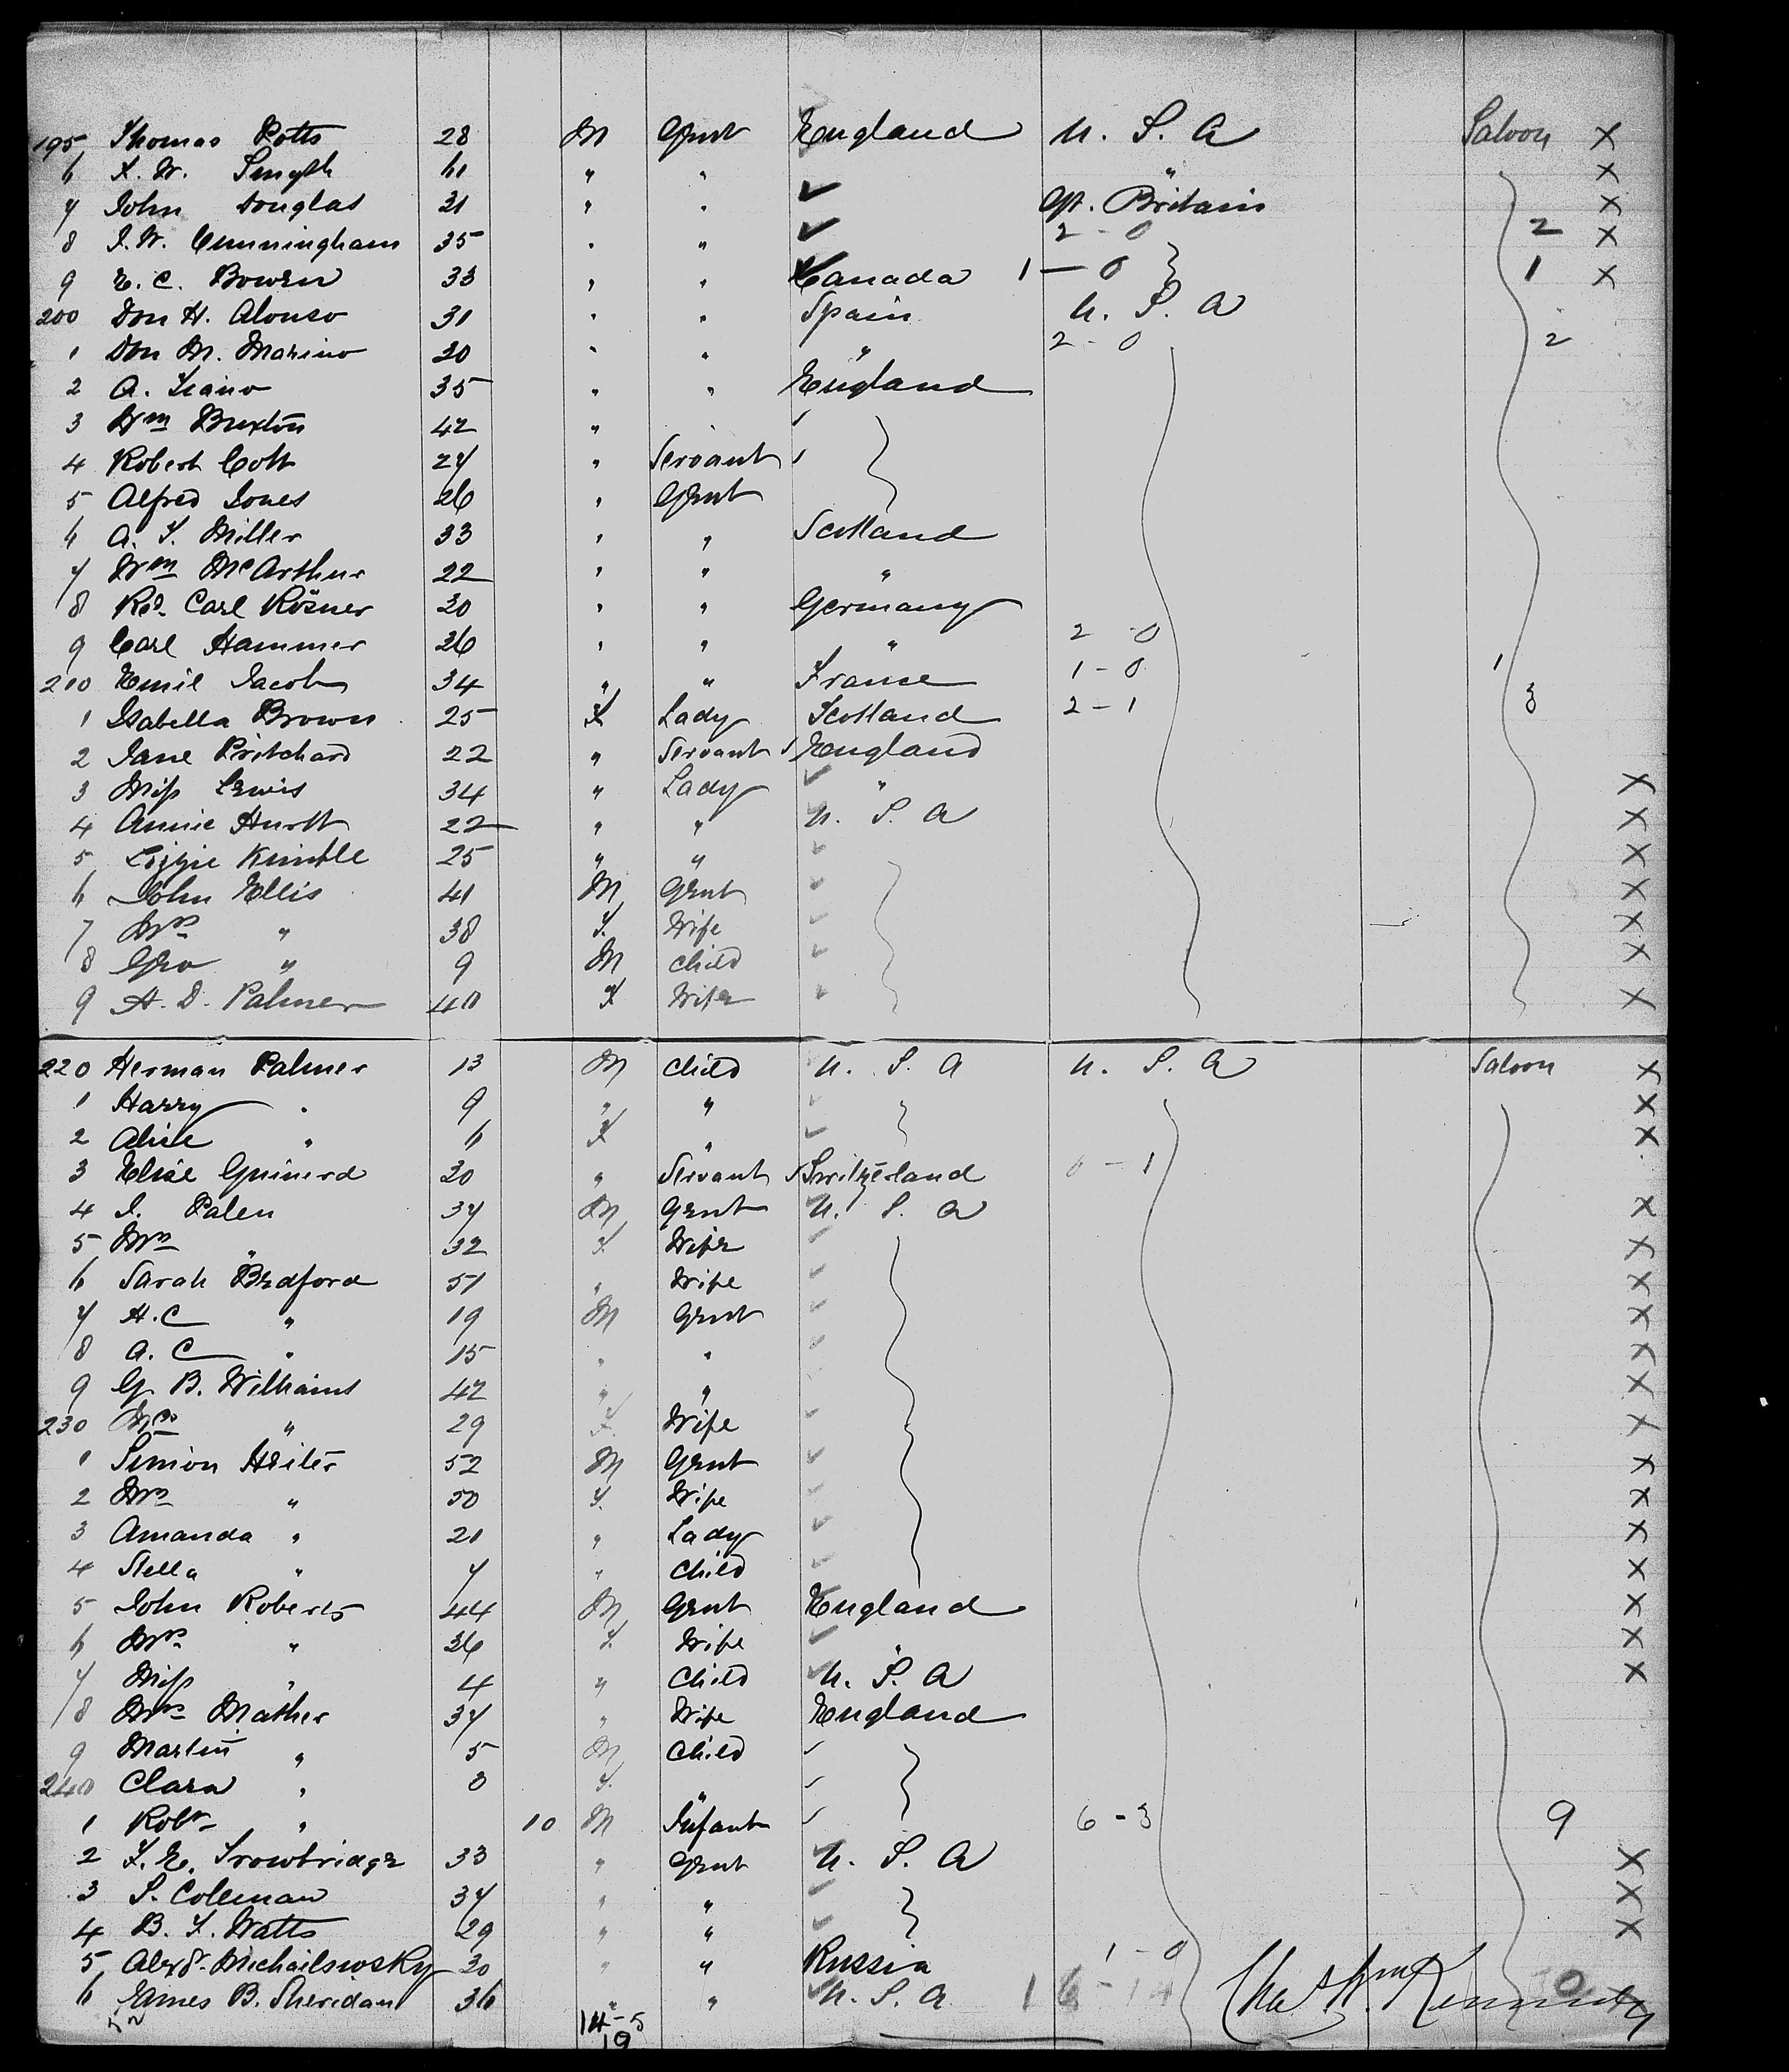 195 Thomas Potts 28 M Gent England U. S. A Saloon X
6 F. W. Smyth 61 " " " X
7 John Douglas 31 " " ✓ Gt. Britain X
8 J. W. Cunningham 35 " " ✓ 2 - 0 2 X
9 E. C. Bowen 33 " " Canada 1 - 0 1 X
200 Don H. Alonso 31 " " Spain U. S. A
1 Don M. Marino 30 " " " 2 - 0 2
2 A. 35 " " England
3 Wm Buxton 42 "
4 Robert Colt 27 " Servant
5 Alfred Jones 26 " Gent
6 A. F. Miller 33 " " Scotland
7 Wm McArthur 22 " " "
8 Revd Carl Rösner 30 " " Germany
9 Carl Hammer 36 " " " 2 - 0
210 Emil Jacob 34 " " France 1 - 0 1
1 Isabella Brown 25 F Lady Scotland 2 - 1 3
2 Jane Pritchard 22 " Servant England
3 Miss Lewis 34 " Lady " X
4 Annie Hurtt 22 " " U. S. A X
5 Lizzie Kimble 25 " " X
6 John Ellis 41 M Gent X
7 Mrs " 38 F. Wife X
8 Geo " 9 M Child X
9 A. D. Palmer 40 F Wife X
220 Herman Palmer 13 M Child U. S. A U. S. A Saloon X
1 Harry " 9 " " X
2 Alice " 6 F " X
3 Elise Guinerd 30 " Servant Switzerland 0 - 1
4 J. Palen 37 M Gent U. S. A X
5 Mrs " 32 F Wife X
6 Sarah Bedford 51 " Wife X
7 H. C " 19 M Gent X
8 A. C " 15 " " X
9 G. B. Williams 42 " " X
230 Mrs " 29 F. Wife X
1 Simon Heiter 52 M Gent X
2 Mrs " 50 F. Wife X
3 Amanda " 21 " Lady X
4 Stella " 7 " Child X
5 John Roberts 44 M Gent England X
6 Mrs " 36 F. Wife " X
7 Miss " 4 " Child U. S. A X
8 Mrs Mather 37 " Wife England
9 Martin " 5 M Child
240 Clara " 3 F. "
1 Robt " 10 M Infant 6 - 3 9
2 F. E. Trowbridge 33 " Gent U. S. A X
3 S. Colleman 37 " " X
4 B. F. Watts 29 " " X
5 Alexr. Michailswsky 30 " " Russia 1 - 0
6 James B. Sheridan 36 " " U. S. A
52 14 - 5
19